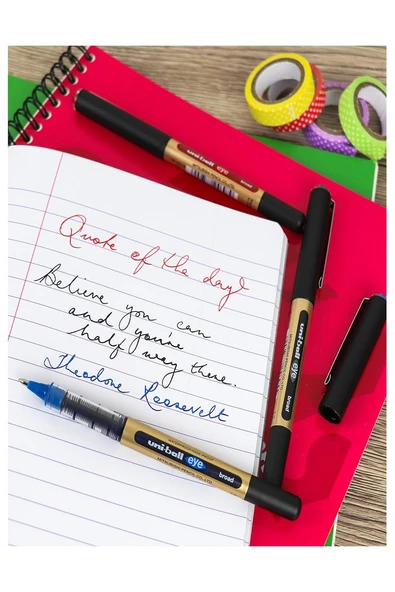 Quote of the day!
Believe you can
and you're
half way there.
Theodore Roosevelt
uni-ball eye
broad
uni-ball eye
broad
uni-ball eye
broad
MITSUBISHI PENCIL CO., LTD.